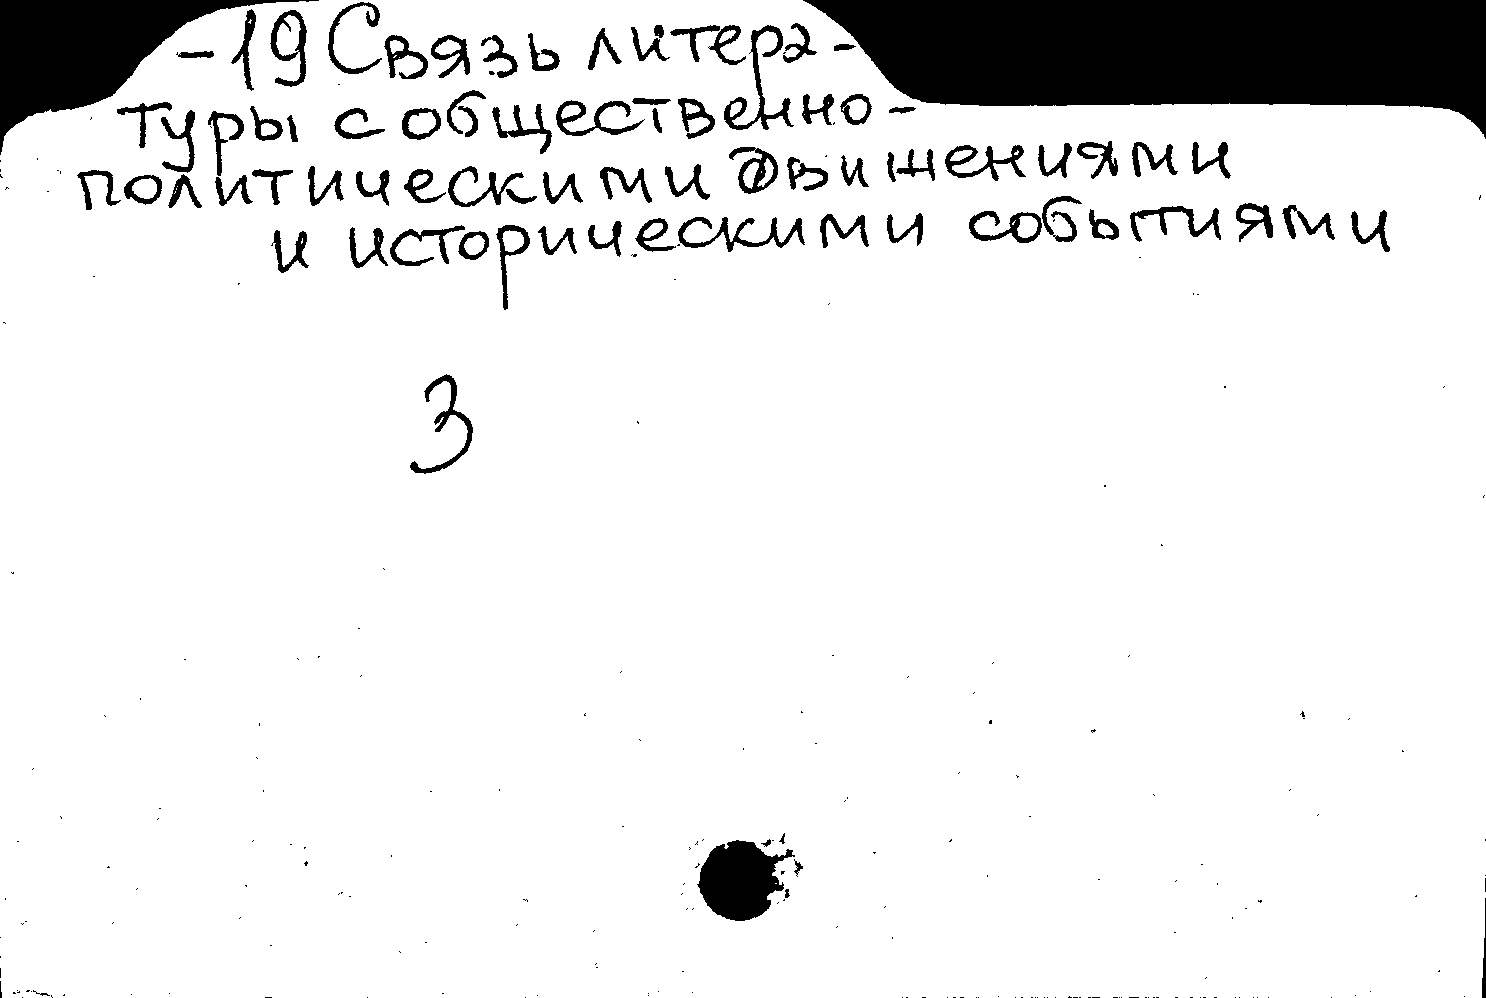 -19 Связь литера-
туры с общественно-
политическими движениями
и историческими событиями
3